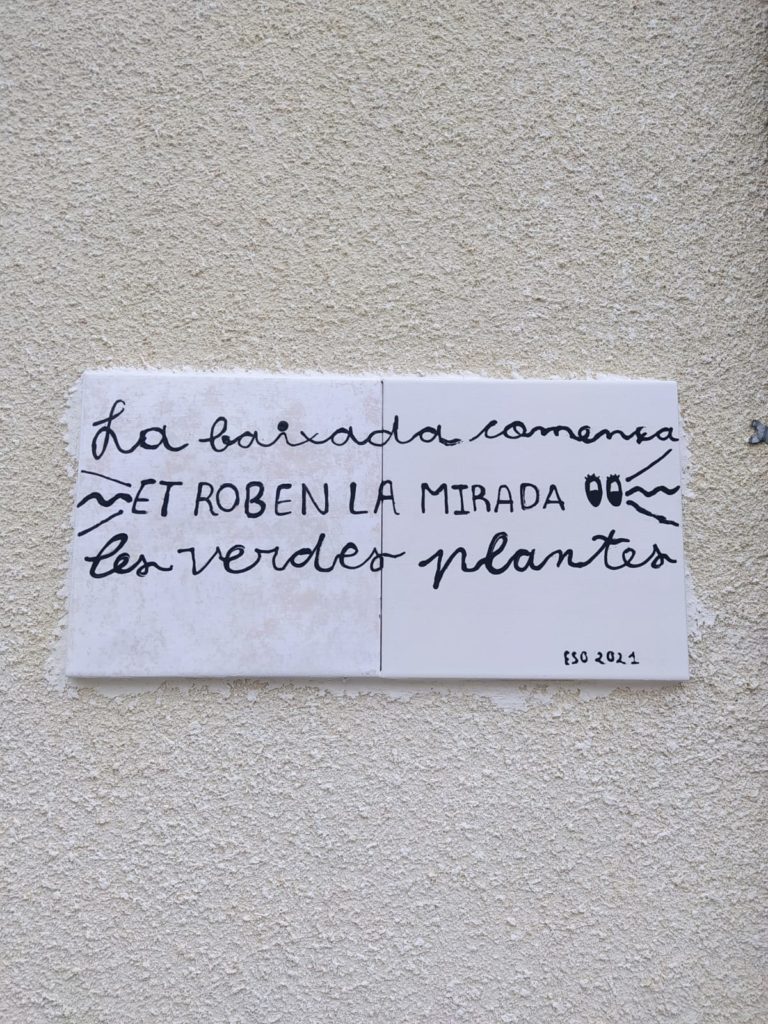 La baixada comença
ET ROBEN LA MIRADA
les verdes plantes
ESO 2021